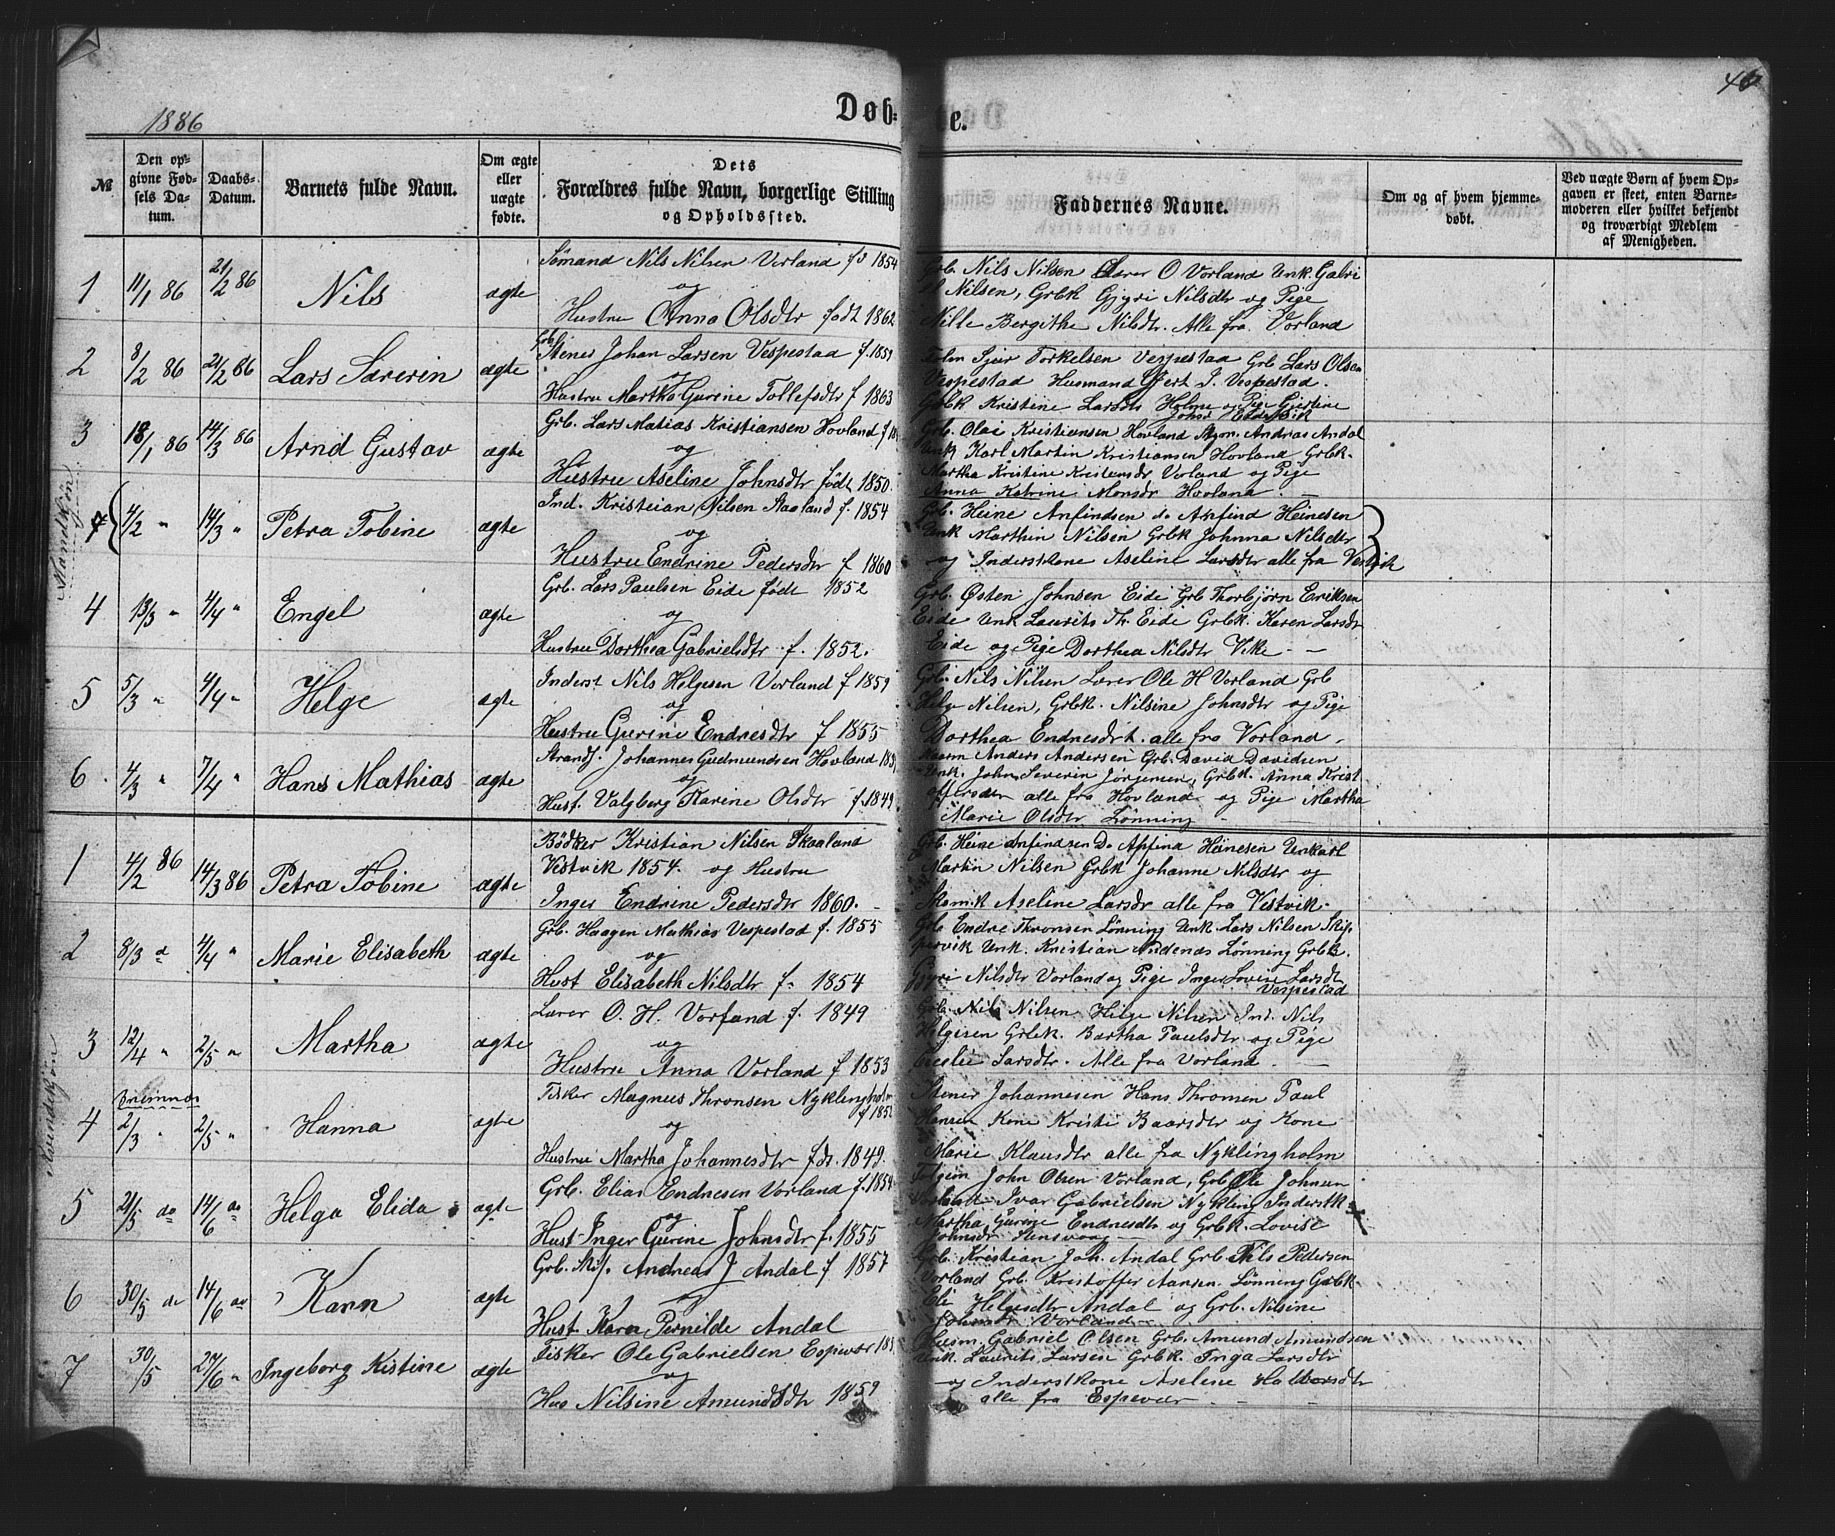 1886
Døb-
te.
40
№
Den op-
givne Fød-
sels Da-
tum.
Daabs-
Datum.
Barnets fulde Navn.
Om ægte
eller
uægte
fødte.
Dets
Forældres fulde Navn, borgerlige Stilling
og Opholdssted.
Faddernes Navne.
Om og af hvem hjemme-
døbt.
Ved uægte Børn af hvem Op-
gaven er skeet, enten Barne-
moderen eller hvilket bekjendt
og troværdigt Medlem
af Menigheden.
Mandkjøn
1 11/1 86 21/2 86 Nils ægte
Sømand Nils Nilsen Vorland fd 1854
og
Hustru Anna Olsdtr født 1862
Grb. Nils Nilsen Lærer O Vorland Unk. Gabri
Nilsen, Grbk Gjyri Nilsdtr og Pige
Nille Bergithe Nilsdtr. Alle fra Vorland
2 8/2 86 21/2 86 Lars Særerin ægte
Stener Johan Larsen Vespestad f. 1859
og
Hustru Martha Gurine Tollefsdtr f 1863
Sjur Torkelsen Vespestad Grb Lars Olsen
Vespestad Husmand Gjert J. Vespestad.
Grbk Kristine Larsdtr Holme og Pige Gjertine
3 18/1 86 14/3 86 Arnd Gustav ægte
Grb. Lars Matias Kristiansen Hovland f 18
og
Hustru Aseline Johnsdtr født 1850.
Grb. Olai Kristiansen Hovland Andras Andal
Unk Karl Martin Kristiansen Hovland Grbk.
Martha Kristine Kristensdt Vorland og Pige
Anna Katrine Monsdr Hovland.
4/2 " 14/3 " Petra Tobine ægte
Ind. Kristeian Nilsen Skaaland f. 1854
og
Hustru Endrine Pedersdtr f 1860
Grb. Heine Anfindsen do Anfind Heinesen
Unk Marthin Nilsen Grbk Johnna Nilsdtr
og Inderstkone Aseline Larsdtr alle fra Vestvik
4 13/3 " 4/4 " Engel ægte
Grb. Lars Paulsen Eide født 1852
og
Hustru Dorthea Gabrielsdtr f. 1852.
Grb. Østen Johnsen Eide Grb Thorbjørn Eriksen
Eide Unk Laurits Th. Eide Grbk. Karen Larsdt
Eide og Pige Dorthea Nilsdtr Vike
5 5/3 " 4/4 " Helge ægte
Inderst Nils Helgesen Vorland f 1859
og
Hustru Gurine Endresdtr f 1855
Grb. Nils Nilsen Lærer Ole H Vorland Grb
Helge Nilsen, Grbk. Nilsine Johnsdtr og Pige
Dorthea Endresdrt. alle fra Vorland.
6 4/3 " 7/4 " Hans Mathias ægte
Strands. Johannes Gudmundsen Hovland 185
og
Hust. Valgberg Karine Olsdtr f. 1849
Anders Andersen Grb. David Davidsen
Unk. John Severin Jørgensen, Grbk. Anna Krist
offersdtr alle fra Hovland og Pige Martha
Marie Olsdtr Lønning
Kvindekjøn
1 4/2 86 14/3 86 Petra Tobine ægte
Bødker Kristian Nilsen Skaaland
Vestvik 1854. og Hustru
Inger Endrine Pedersdtr 1860.
Grb. Heine Anfindsen Do Anfind Heinesen Unkarl
Martin Nilsen Grbk Johanne Nilsdtr og
Aseline Larsdr alle fra Vestvik.
2 8/3 d 4/4 " Marie Elisabeth ægte
Grb. Haagen Mathias Vespestad f. 1855
og
Hust Elisabeth Nilsdtr f. 1854
Grb Endre Thronsen Lønning Unk. Lars Nilsen Skip
pervik Unk. Kristian Lønning Grbk.
Gjyri Nilsdtr Vorland og Pige Inger Lovise Larsdt
Vespestad
3 12/4 " 2/5 " Martha ægte
Lærer O. H. Vorland f. 1849
og
Hustru Anna Vorland f 1853
Grb. Nils Nilsen Helge Nilsen Ind. Nils
Helgesen Grbk. Bartha Paulsdtr og Pige
Cecelie Larsdtr. Alle fra Vorland.
Bremnæs
4 2/3 " 2/5 " Hanna ægte
Fisker Magnus Thronsen Nyklingholm
f 1852
og
Hustru Martha Johannesdtr fdt. 1849.
Stener Johannesen Hans Thronsen Paul
Hansen Kone Kristi Baarsdtr og Kone
Marie Klausdtr alle fra Nyklingholm
5 21/5 do 14/6 do Helga Elida ægte
Grb. Elias Endresen Vorland f. 1859
og
Hust Inger Gurine Johnsdtr f. 1855
John Olsen Vorland, Grb Ole Johnsen
Ivar Gabrielsen Nykling Inderstk
Martha Gurine Endresdtr og Grbk. Lovise
Johnsdr
6 30/5 do 14/6 do Karen ægte
Grb. Andreas J Andal f 1857
og
Hust. Karen Pernilde Andal
Grb. Kristian Joh. Andal Grb. Nils Pedersen
Vorland Grb. Kristoffer Aansen Lønning Grbk.
Eli Helgesdtr Andal og Grb. Nilsine
Johnsdr Vorland
7 30/5 27/6 " Ingeborg Kistine ægte
Fisker Ole Gabrielsen Espevær 185
og
Hus Nilsine Amundsdtr 1859
Gabriel Olsen Grb. Amund Amundsen
Unk. Laurits Larsen Grbk. Inga Larsdtr
og Inderstkone Aseline Halvorsdtr
alle fra Espevær